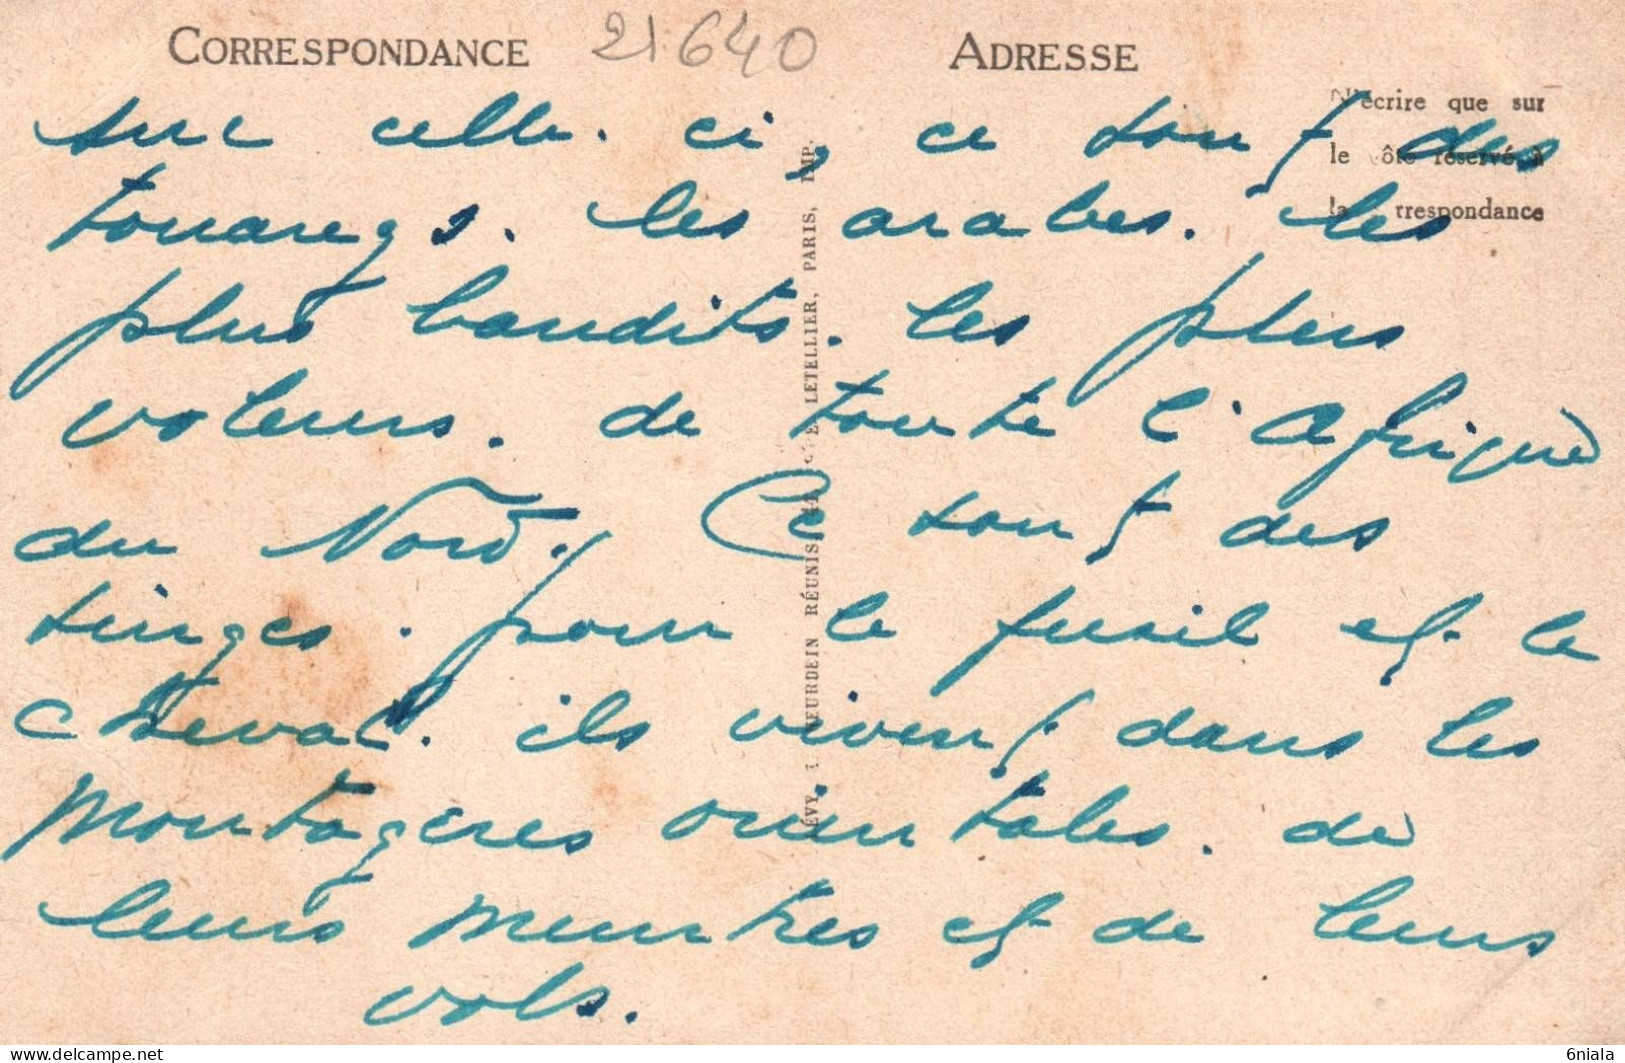 CORRESPONDANCE
21640
ADRESSE
N'écrire que sur
le côté réservé à
la correspondance
sur celle. ci, ce sont des
touaregs. les arabes. les
plus bandits. les plus
voleurs. de toute l'Afrique
du Nord. Ce sont des
singes. pour le fusil et le
cheval. ils vivent dans les
montagnes orientales. de
leurs meurtres et de leurs
vols.
LÉVY NEURDEIN RÉUNIS, 44 LETELLIER, PARIS, IMP.
delcampe.net
6niala